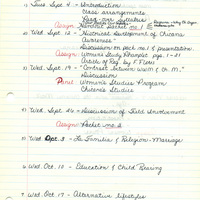 1) Tues Sept 4 - Introduction
Class arrangements
2) Wed. Sept 12 - Historical Development of Chicana
Awareness -
Discussion on packet no. 1 & presentation
Assign: Women's Study Pamphlet pgs. 1-21
Article of Reg. by F. Flores
3) Wed. Sept 19 - "Contrast between women & ch. M."
Discussion
Women's Studies Program
Chicano Studies
4) Wed. Sept 26 - Discussion of Field Involvement
Assign: Packet no. 2
5) Wed. Oct. 3 - La Familia & Religion - Marriage
6) Wed. Oct. 10 - Education & Child Rearing
7) Wed. Oct. 17 - Alternative lifestyles